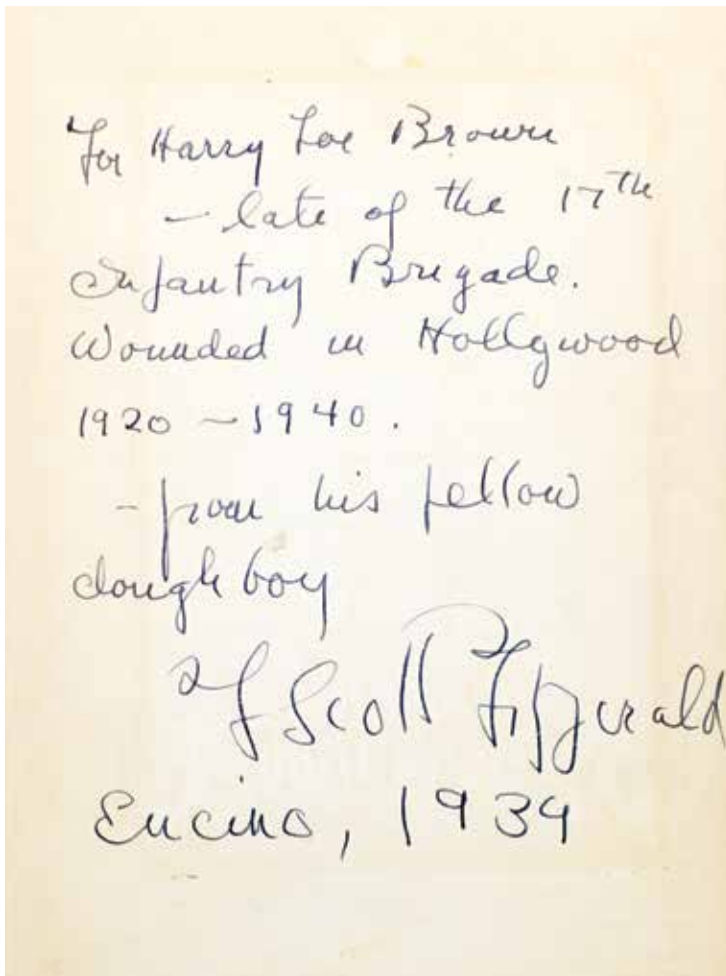 For Harry Joe Brown
– late of the 17th
Infantry Brigade.
Wounded in Hollywood
1920 – 1940.
– from his fellow
doughboy
F Scott Fitzgerald
Encino, 1939